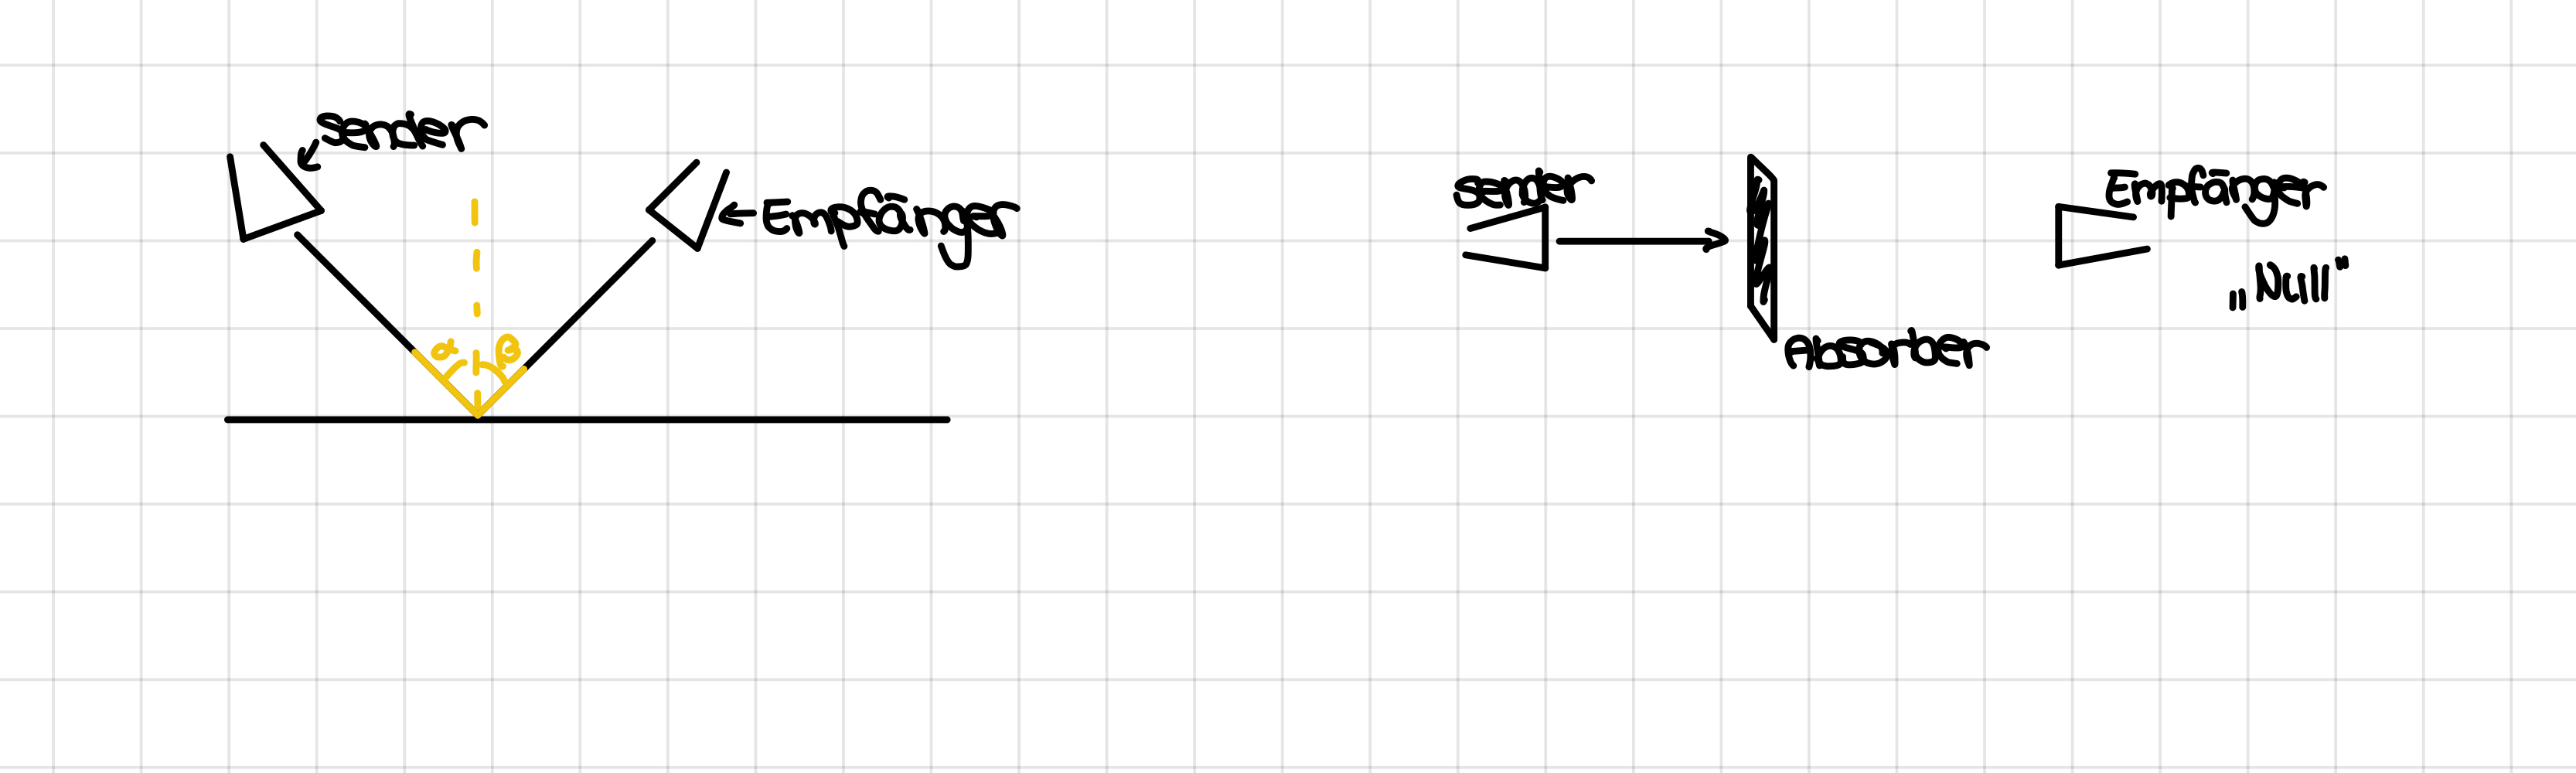 Sender
Empfänger
α β
Sender
Absorber
Empfänger
„Null"